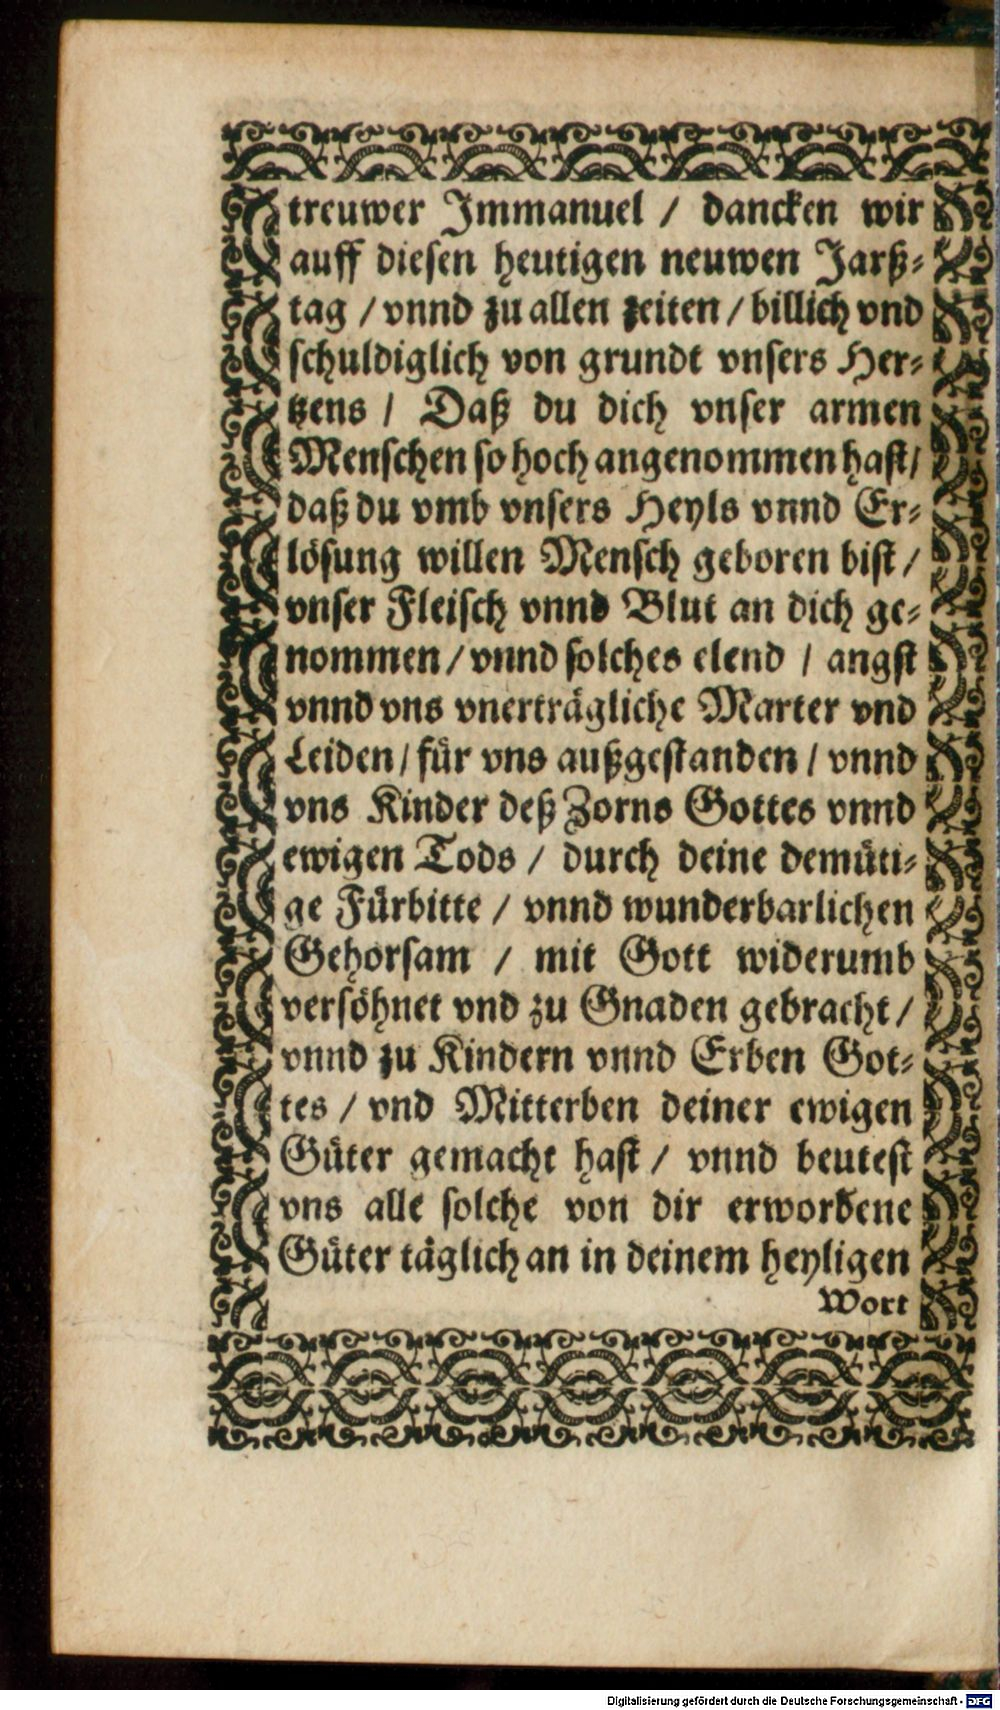 treuwer Immanuel / dancken wir
auff diesen heutigen neuwen Jarß-
tag / vnnd zu allen zeiten / billich vnd
schuldiglich von grundt vnsers Her-
tzens / Daß du dich vnser armen
Menschen so hoch angenommen hast /
daß du vmb vnsers Heyls vnnd Er-
lösung willen Mensch geboren bist /
vnser Fleisch vnnd Blut an dich ge-
nommen / vnnd solches elend / angst
vnnd vns vnerträgliche Marter vnd
Leiden / für vns außgestanden / vnnd
vns Kinder deß Zorns Gottes vnnd
ewigen Tods / durch deine demüti-
ge Fürbitte / vnnd wunderbarlichen
Gehorsam / mit Gott widerumb
versöhnet vnd zu Gnaden gebracht /
vnnd zu Kindern vnnd Erben Got-
tes / vnd Mitterben deiner ewigen
Güter gemacht hast / vnnd beutest
vns alle solche von dir erworbene
Güter täglich an in deinem heyligen
Wort
Digitalisierung gefördert durch die Deutsche Forschungsgemeinschaft - DFG